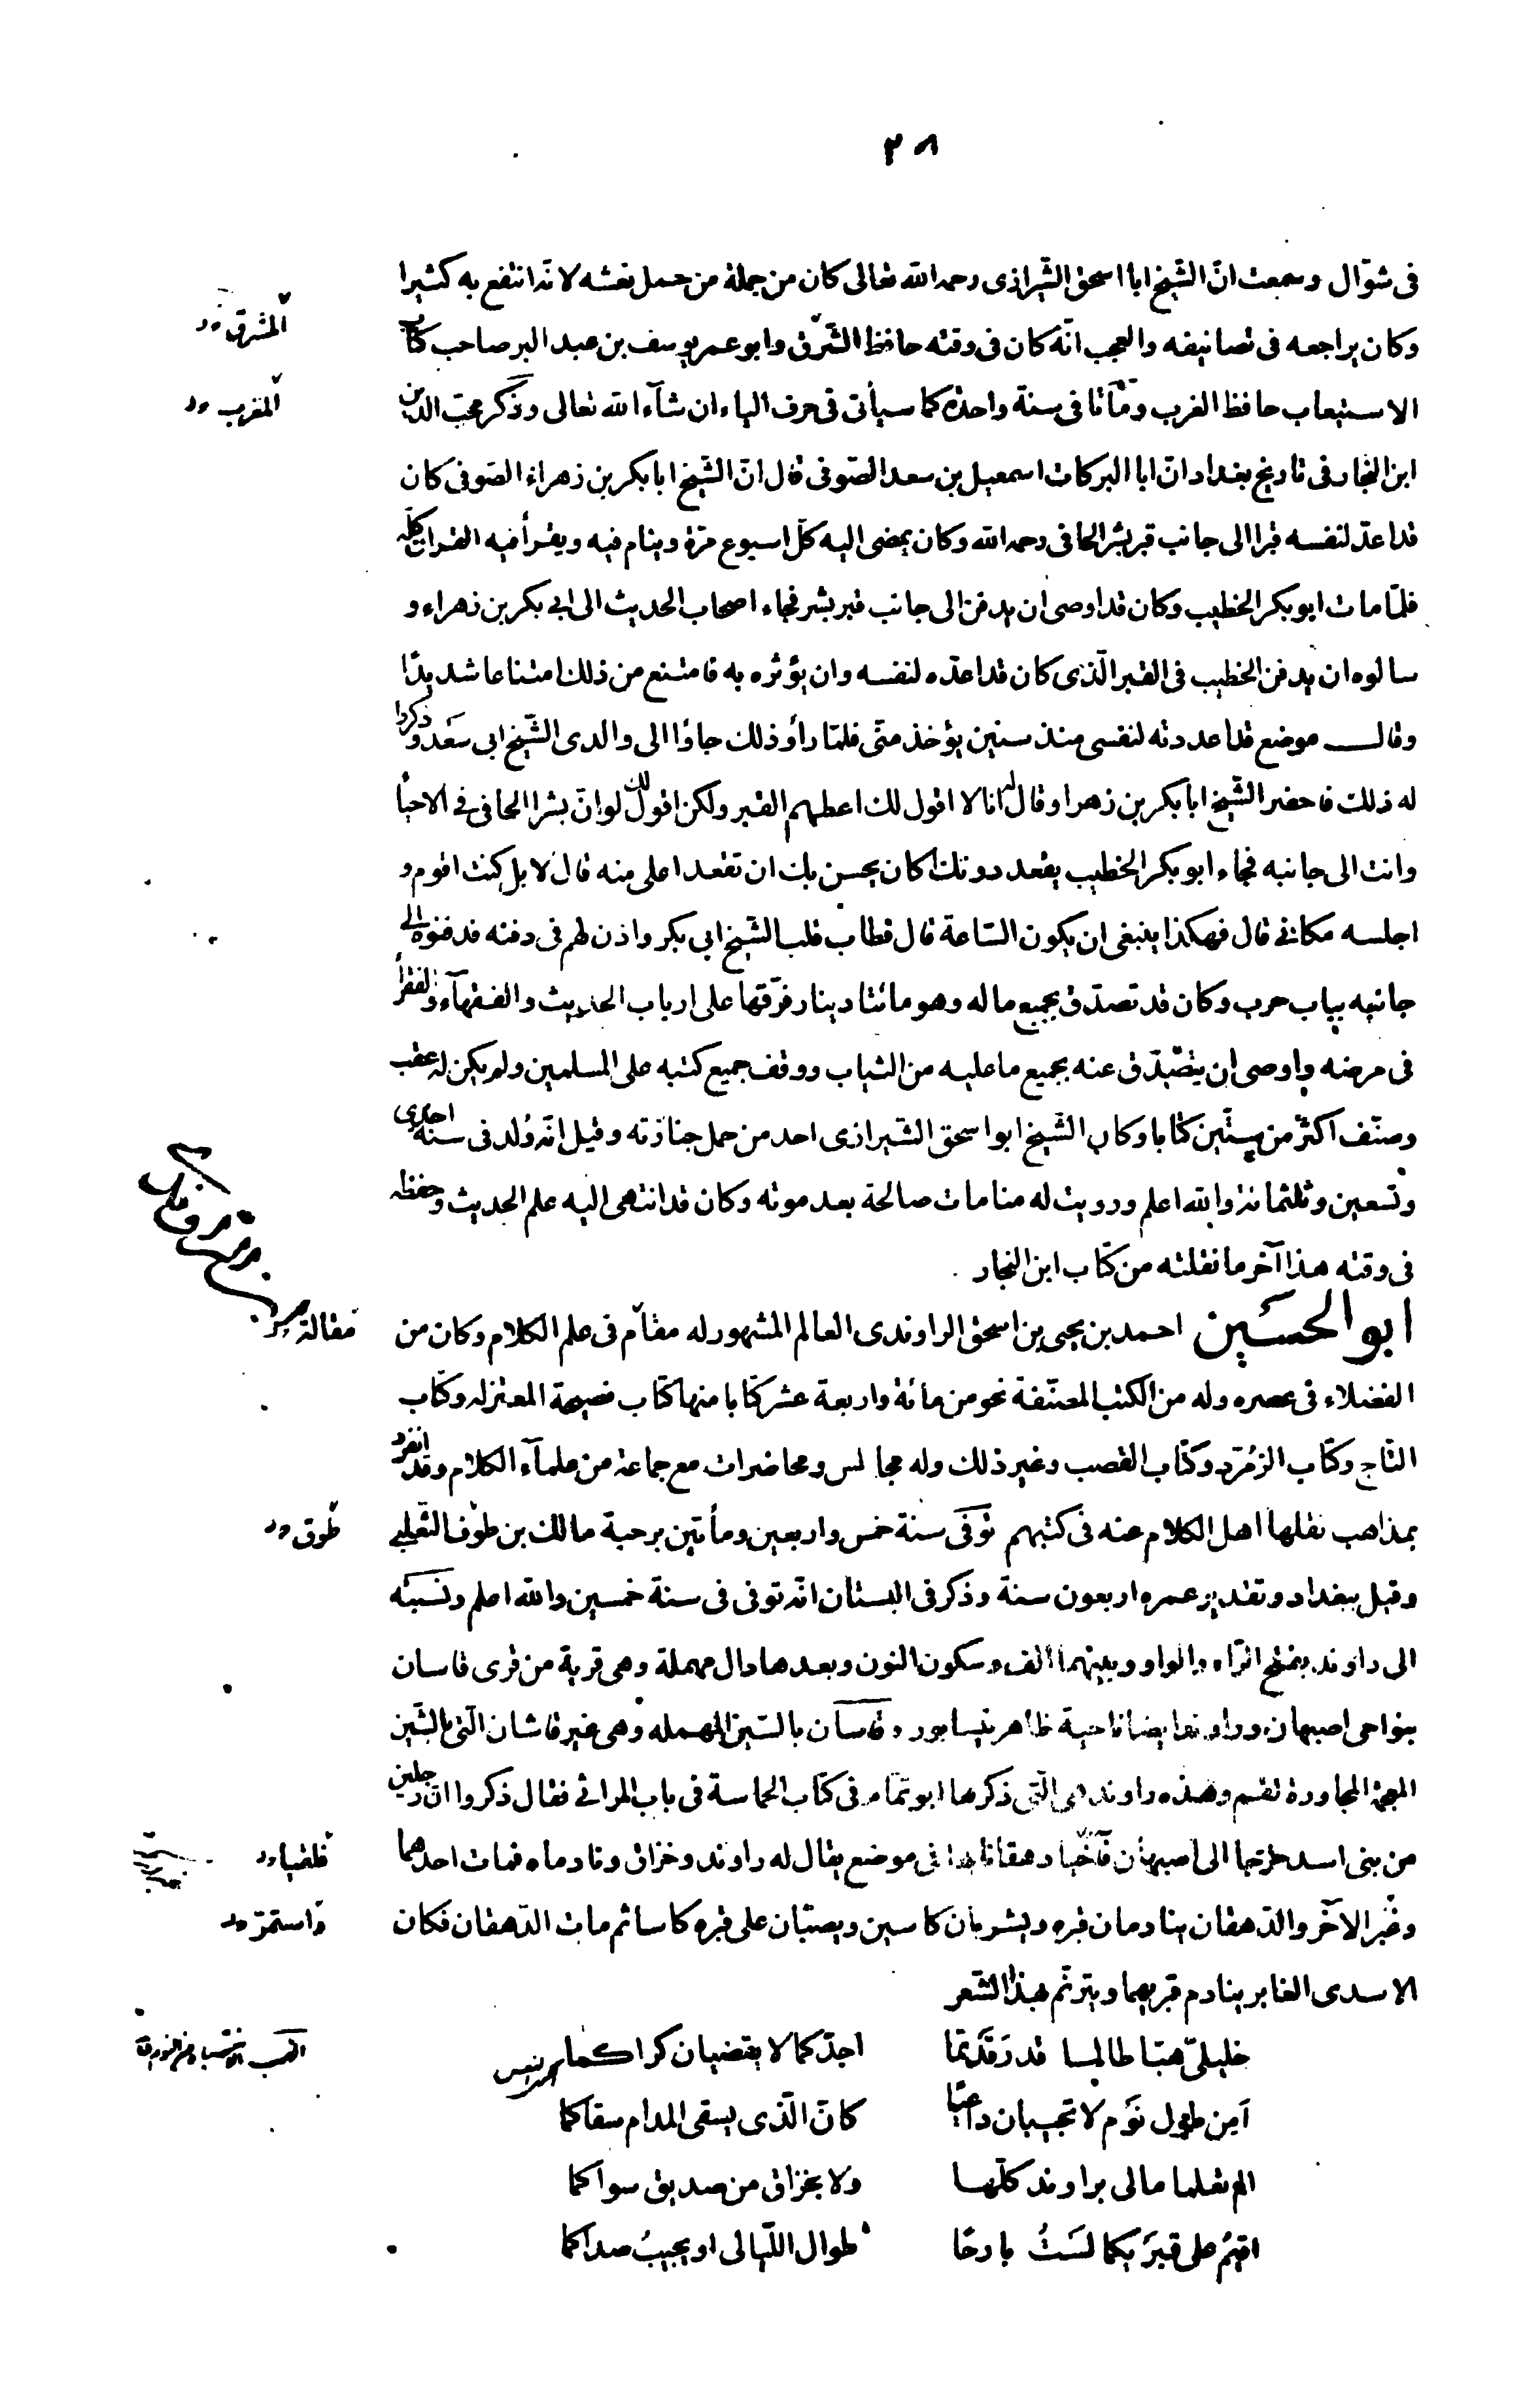 ٣٨
فى شوّال وسمعت انّ الشّيخ ابا اسحق الشّيرازى رحمه الله تعالى كان من جملة من حمل نعشه لانّه انتفع به كثيرا
وكان يراجعه فى تصانيفه والعجب انّه كان فى وقته حافظ الشّرق وابو عمر يوسف بن عبد البر صاحب كتاب
المشرق
الاستيعاب حافظ الغرب وماتا فى سنة واحدة كما سيأتى فى حرف الياء ان شآء الله تعالى وذكر محبّ الدين
المغرب
ابن النجار فى تاريخ بغداد انّ ابا البركات اسمعيل بن سعد الصّوفى قال انّ الشّيخ ابا بكر بن زهراء الصّوفى كان
قد اعدّ لنفسه قبرا الى جانب قبر بشر الحافى رحمه الله وكان يمضى اليه كلّ اسبوع مرّة وينام فيه ويقرأ فيه القران كلّه
فلمّا مات ابو بكر الخطيب وكان قد اوصى ان يدفن الى جانب قبر بشر فجاء اصحاب الحديث الى ابى بكر بن زهراء و
سالوه ان يدفن الخطيب فى القبر الّذى كان قد اعدّه لنفسه وان يؤثره به فامتنع من ذلك امتناعا شديدًا
وقال موضع قد اعددته لنفسى منذ سنين يؤخذ منّى فلمّا رأو ذلك جاؤا الى والدى الشّيخ ابى سعد وذكروا
له ذلك فاحضر الشّيخ ابا بكر بن زهرا وقال له انا لا اقول لك اعطهم القبر ولكن اقول لك لو انّ بشرا الحافى فى الاحيأ
وانت الى جانبه فجاء ابو بكر الخطيب يقعد دونك اكان يحسن بك ان تقعد اعلى منه قال لا بل كنت اقوم و
اجلسه مكانى قال فهكذا ينبغى ان يكون السّاعة قال فطاب قلب الشّيخ ابى بكر واذن لهم فى دفنه فدفنوه الى
جانبه بباب حرب وكان قد تصدّق بجميع ماله وهو مائتا دينار فرّقها على ارباب الحديث والفقهآء والفقرأ
فى مرضه واوصى ان يتصّدّق عنه بجميع ما عليه من الثياب ووقف جميع كتبه على المسلمين ولم يكن له عقب
وصنّف اكثر من ستّين كتابا وكان الشّيخ ابو اسحق الشّيرازى احد من حمل جنازته وقيل انّه وُلد فى سنة احدى
وتسعين وثلثمائة والله اعلم ورويت له منامات صالحة بعد موته وكان قد انتهى اليه علم الحديث وحفظه
فى وقته هذا آخر ما نقلته من كتاب ابن النجار
ابو الحسَين احمد بن يحيى بن اسحق الراوندى العالم المشهور له مقام فى علم الكلام وكان من
مقالة
الفضلاء فى عصره وله من الكتب المصنّفة نحو من مائة واربعة عشر كتابا منها كتاب فضيحة المعتزله وكتاب
التّاج وكتاب الزمُرّد وكتاب القصب وغير ذلك وله مجالس ومحاضرات مع جماعة من علمآء الكلام وقد انفرد
بمذاهب نقلها اهل الكلام عنه فى كتبهم توفّى سنة خمس واربعين ومأتين برحبة مالك بن طوف التّغلبى
طوق
وقيل ببغداد وتقدير عمره اربعون سنة وذكر فى البستان انّه توفى فى سنة خمسين والله اعلم ونسبته
الى راوند بفتح الرّاء والواو وبينهما الف وسكون النون وبعدها دال مهملة وهى قرية من قرى قاسان
بنواحى اصبهان وراوند ايضا ناحية ظاهر نيسابور وقاسان بالسّين المهمله وهى غير قاشان الّتى بالشّين
المعجمة المجاورة لقم وهذه راوند هى الّتى ذكرها ابو تمّام فى كتاب الحماسة فى باب المراثى فقال ذكروا انّ رجلين
من بنى اسد خرجا الى اصبهان فآخيا دهقانا بها فى موضع يقال له راوند وخزاق ونادماه فمات احدهما
وغبر الآخر والدّهقان ينادمان قبره ويشربان كاسين ويصبّان على قبره كاسا ثم مات الدّهقان فكان
واستمرّ
الاسدى الغابر ينادم قبريهما ويترنّم بهذا الشّعر
خليليّ هبّا طالما قد رَقَدتما اجدّكما لا يقضيان كراكما
اَمِن طول نَوم لا تجيبان داعيًا كانّ الّذى يسقى المدام سقاكما
الم تعلما مالى براوند كلّها ولا بخزاق من صديق سواكما
اقيمُ على قبرَيكما لسَتُ بارحًا طوال اللّيالى او يجيبُ صداكما